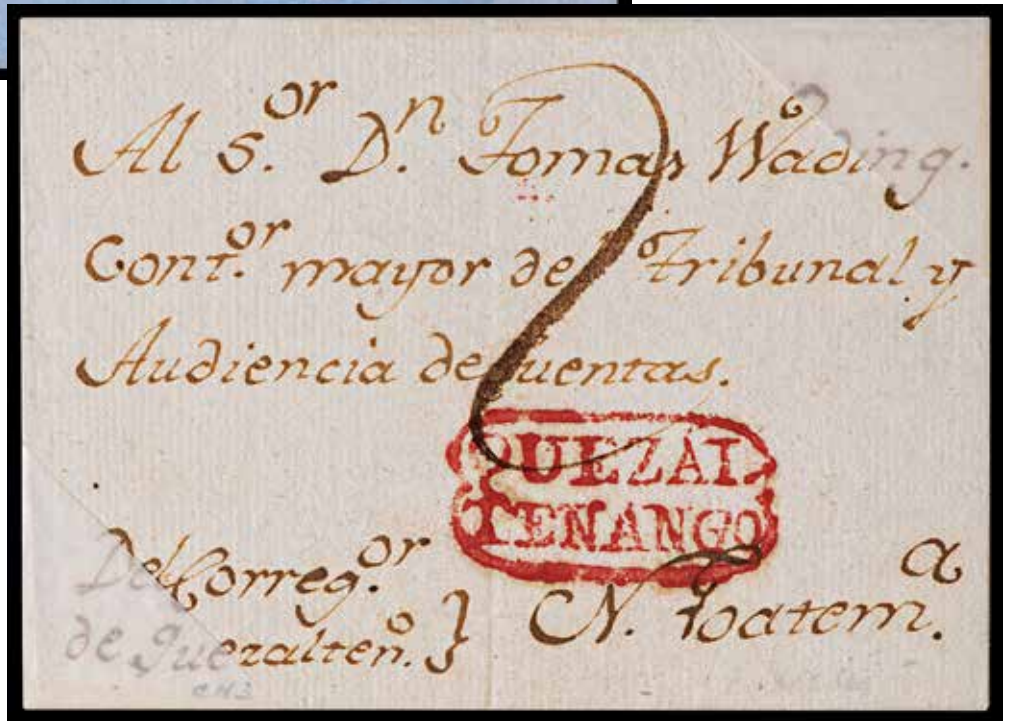 Al S.or D.n Tomas Wading.
Cont.or mayor del Tribunal y
Audiencia de Cuentas.
QUEZAL
TENANGO
Del Correg.or
de Quezalten.o }
N. Goatem.a